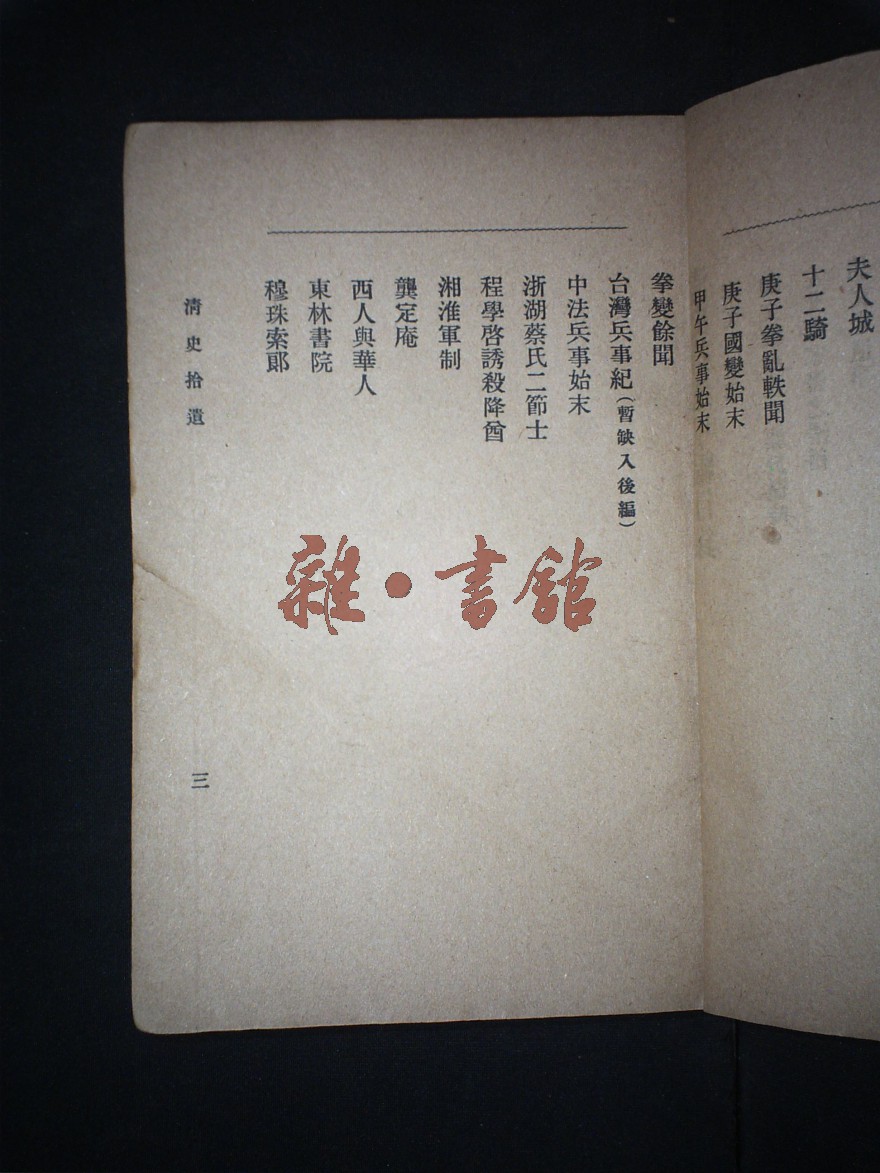 夫人城
十二騎
庚子拳亂軼聞
庚子國變始末
甲午兵事始末
拳變餘聞
台灣兵事紀（暫缺入後編）
中法兵事始末
浙湖蔡氏二節士
程學啓誘殺降酋
湘淮軍制
龔定庵
西人與華人
東林書院
穆珠索郎
清史拾遺
三
雜·書館